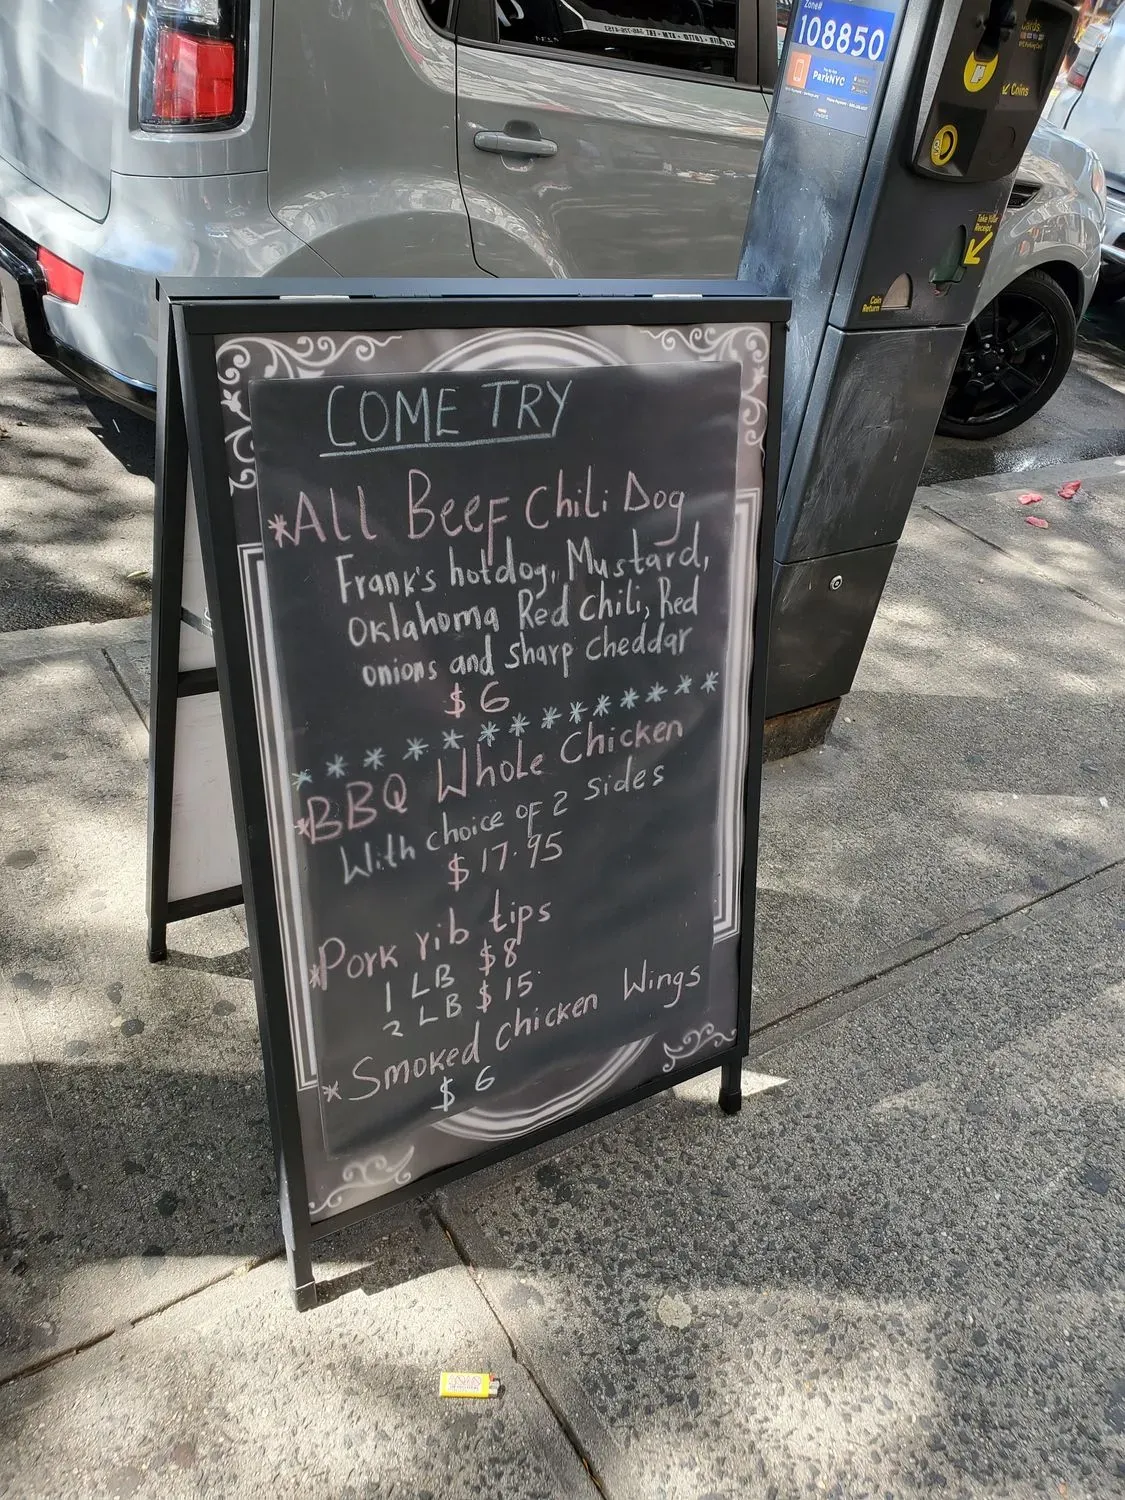 Zone#
108850
ParkNYC
Cards
Coins
Take Your
Receipt
Coin
Return
COME TRY
*All Beef Chili Dog
Frank's hotdog, Mustard,
Oklahoma Red Chili, Red
onions and sharp cheddar
$6
* * * * * * * * * * * *
*BBQ Whole Chicken
With choice of 2 sides
$17.95
*Pork rib tips
1 LB $8
2 LB $15
*Smoked Chicken Wings
$6